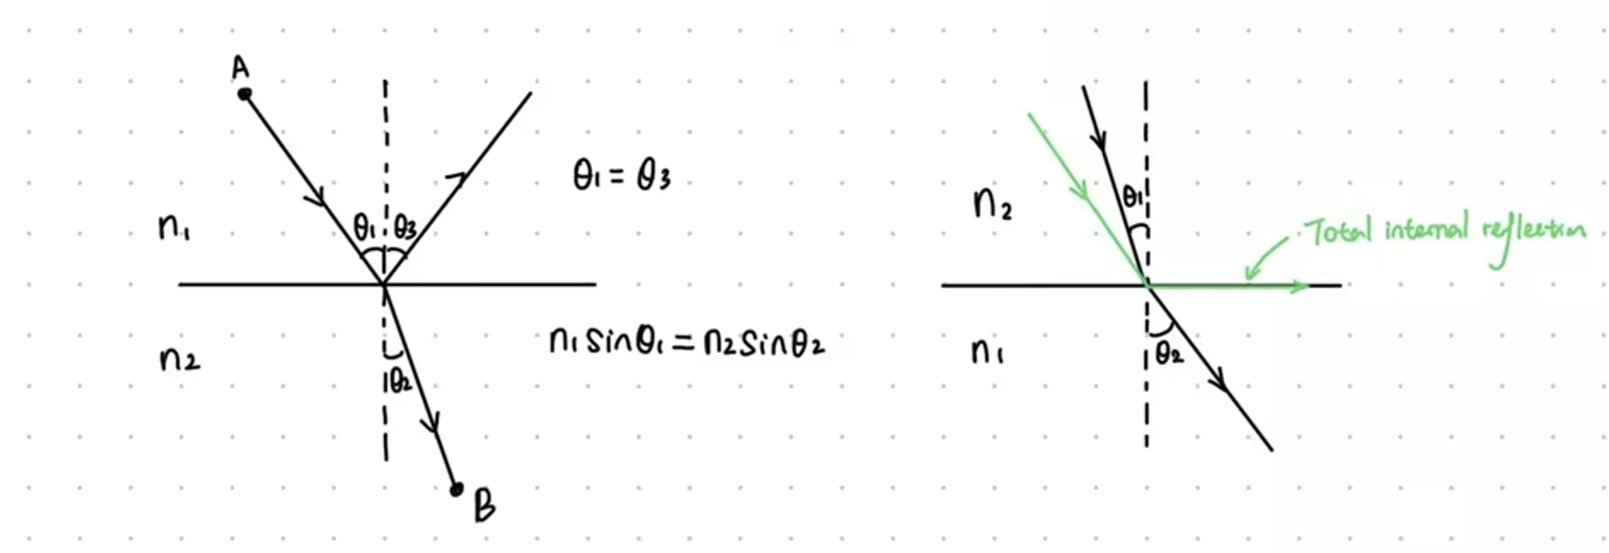 A
θ₁ θ₃
θ₁ = θ₃
n₁
n₂
n₁ sinθ₁ = n₂ sinθ₂
θ₂
B
n₂
θ₁
Total internal reflection
n₁
θ₂